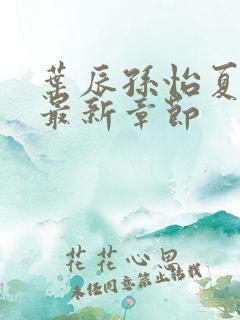 叶辰孙怡夏
最新章节
花花心思
未经同意禁止转载